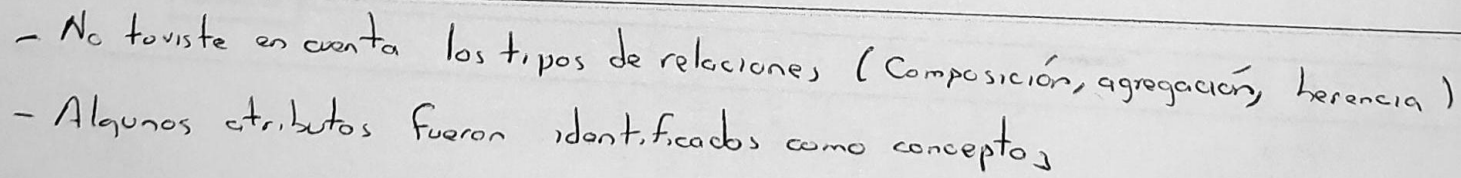 - No toviste en cuenta los tipos de relaciones (Composición, agregación, herencia)
- Algunos atributos fueron identificados como conceptos